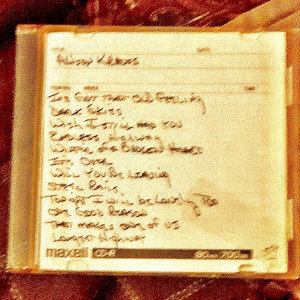 TITLE DATE
ALISON KRAUSS
I'VE GOT THAT OLD FEELING
DARK SKIES
WISH I STILL HAD YOU
ENDLESS HIGHWAY
WINDS OF A BROKEN HEART
IT'S OVER
WILL YOU BE LEAVING
STEEL RAILS
TONIGHT I WILL BE LONELY TOO
ONE GOOD REASON
THAT MAKES ONE OF US
LONGEST HIGHWAY
maxell CD-R 80min 700